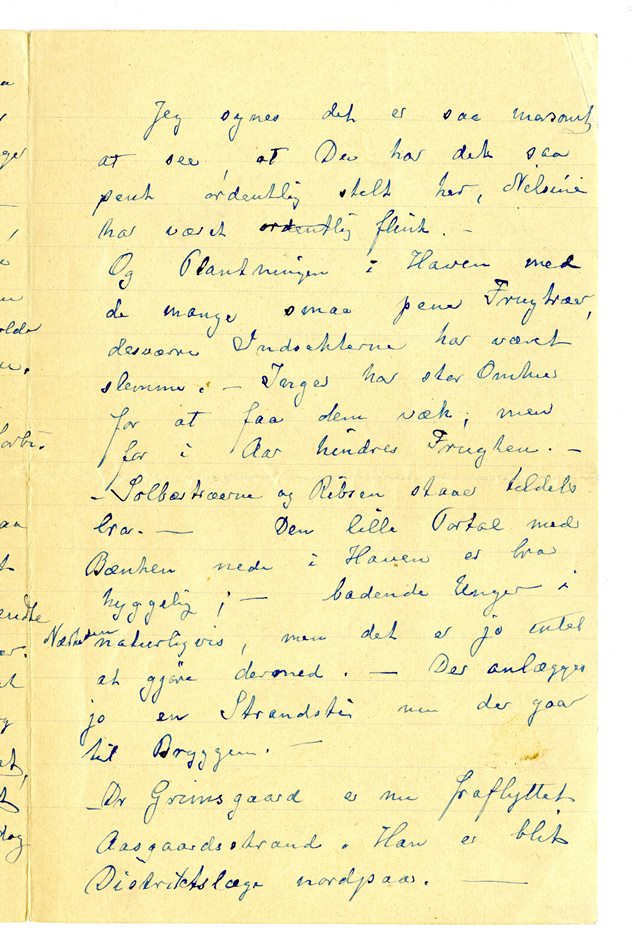 Jeg synes det er saa morsomt
at see at De har det saa
pent ordentlig stelt her, Nelsine
har været ordentlig flink. -
Og Plantningen i Haven med
de mange smaa pene Frugtrær,
desværre Indsekterne har været
slemme. - Inger har stor Omhu
for at faa dem væk, men
for i Aar hindres Frugten. -
- Solbærtræerne og Ribsen staaer tildels
bra. - Den lille Portal med
Bænken nede i Haven er bra
hyggelig; - badende Unger i
Nærheden naturligvis, men det er jo intet
at gjøre dermed. - Der anlægges
jo en Strandsti nu der gaar
til Bryggen. -
Dr Grimsgaard er nu fraflyttet
Aasgaardsstrand. Han er blit
Distriktslæge nordpaa. -